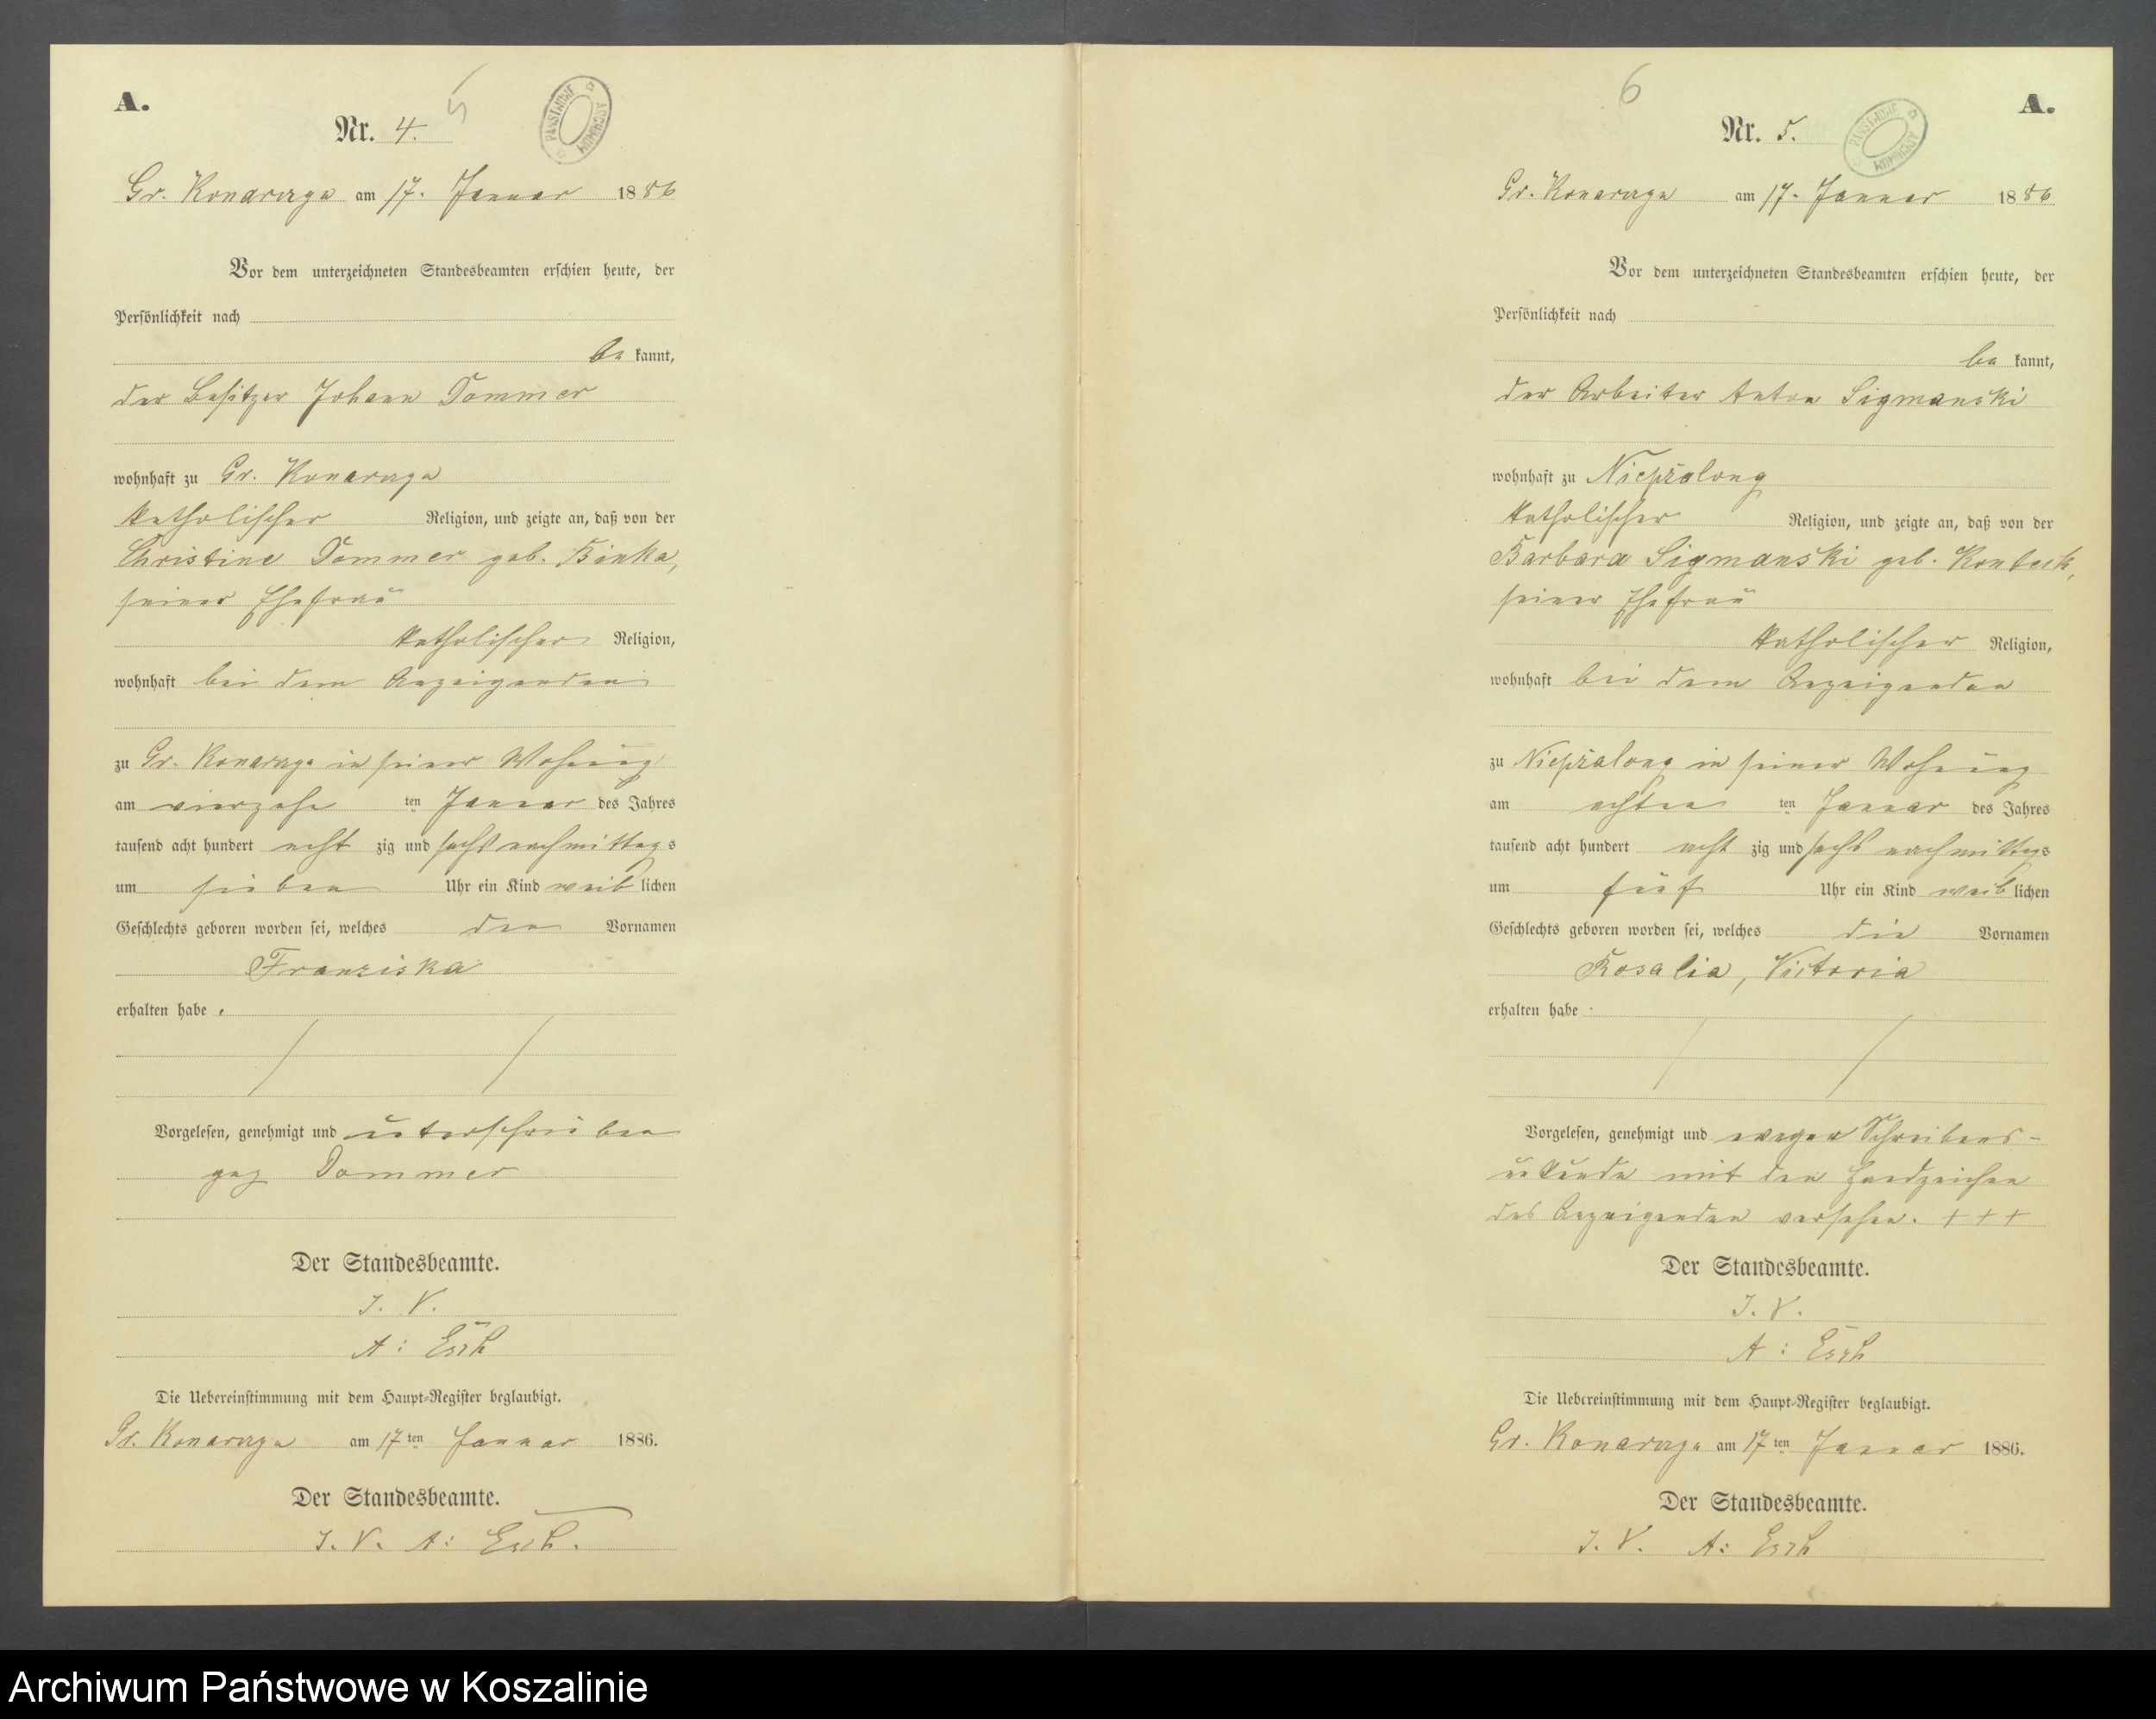 A.
5
Nr. 4.
ARCHIWUM PAŃSTWOWE
Gr. Konarczyn am 17. Januar 1886
Vor dem unterzeichneten Standesbeamten erschien heute, der
Persönlichkeit nach
be kannt,
der Besitzer Johann Dommer
wohnhaft zu Gr. Konarczyn
katholischer Religion, und zeigte an, daß von der
Christine Dommer geb. Binka,
seiner Ehefrau
katholischer Religion,
wohnhaft bei dem Anzeigenden
zu Gr. Konarczyn in seiner Wohnung
am vierzehn ten Januar des Jahres
tausend acht hundert acht zig und sechs nachmittags
um sieben Uhr ein Kind weib lichen
Geschlechts geboren worden sei, welches den Vornamen
Franziska
erhalten habe.
Vorgelesen, genehmigt und unterschrieben
gez Dommer
Der Standesbeamte.
I. V.
A: Esch
Die Uebereinstimmung mit dem Haupt-Register beglaubigt.
Gr. Konarczyn am 17 ten Januar 1886.
Der Standesbeamte.
I. V. A: Esch.
6
A.
Nr. 5.
ARCHIWUM PAŃSTWOWE
Gr. Konarczyn am 17. Januar 1886
Vor dem unterzeichneten Standesbeamten erschien heute, der
Persönlichkeit nach
be kannt,
der Arbeiter Anton Sigmanski
wohnhaft zu Niepszalong
katholischer Religion, und zeigte an, daß von der
Barbara Sigmanski geb.
seiner Ehefrau
katholischer Religion,
wohnhaft bei dem Anzeigenden
zu Niepszalong in seiner Wohnung
am achten ten Januar des Jahres
tausend acht hundert acht zig und sechs nachmittags
um fünf Uhr ein Kind weib lichen
Geschlechts geboren worden sei, welches die Vornamen
Rosalia, Victoria
erhalten habe.
Vorgelesen, genehmigt und wegen Schreibens-
unkunde mit den Handzeichen
des Anzeigenden versehen. +++
Der Standesbeamte.
I. V.
A: Esch
Die Uebereinstimmung mit dem Haupt-Register beglaubigt.
Gr. Konarczyn am 17 ten Januar 1886.
Der Standesbeamte.
I. V. A: Esch
Archiwum Państwowe w Koszalinie